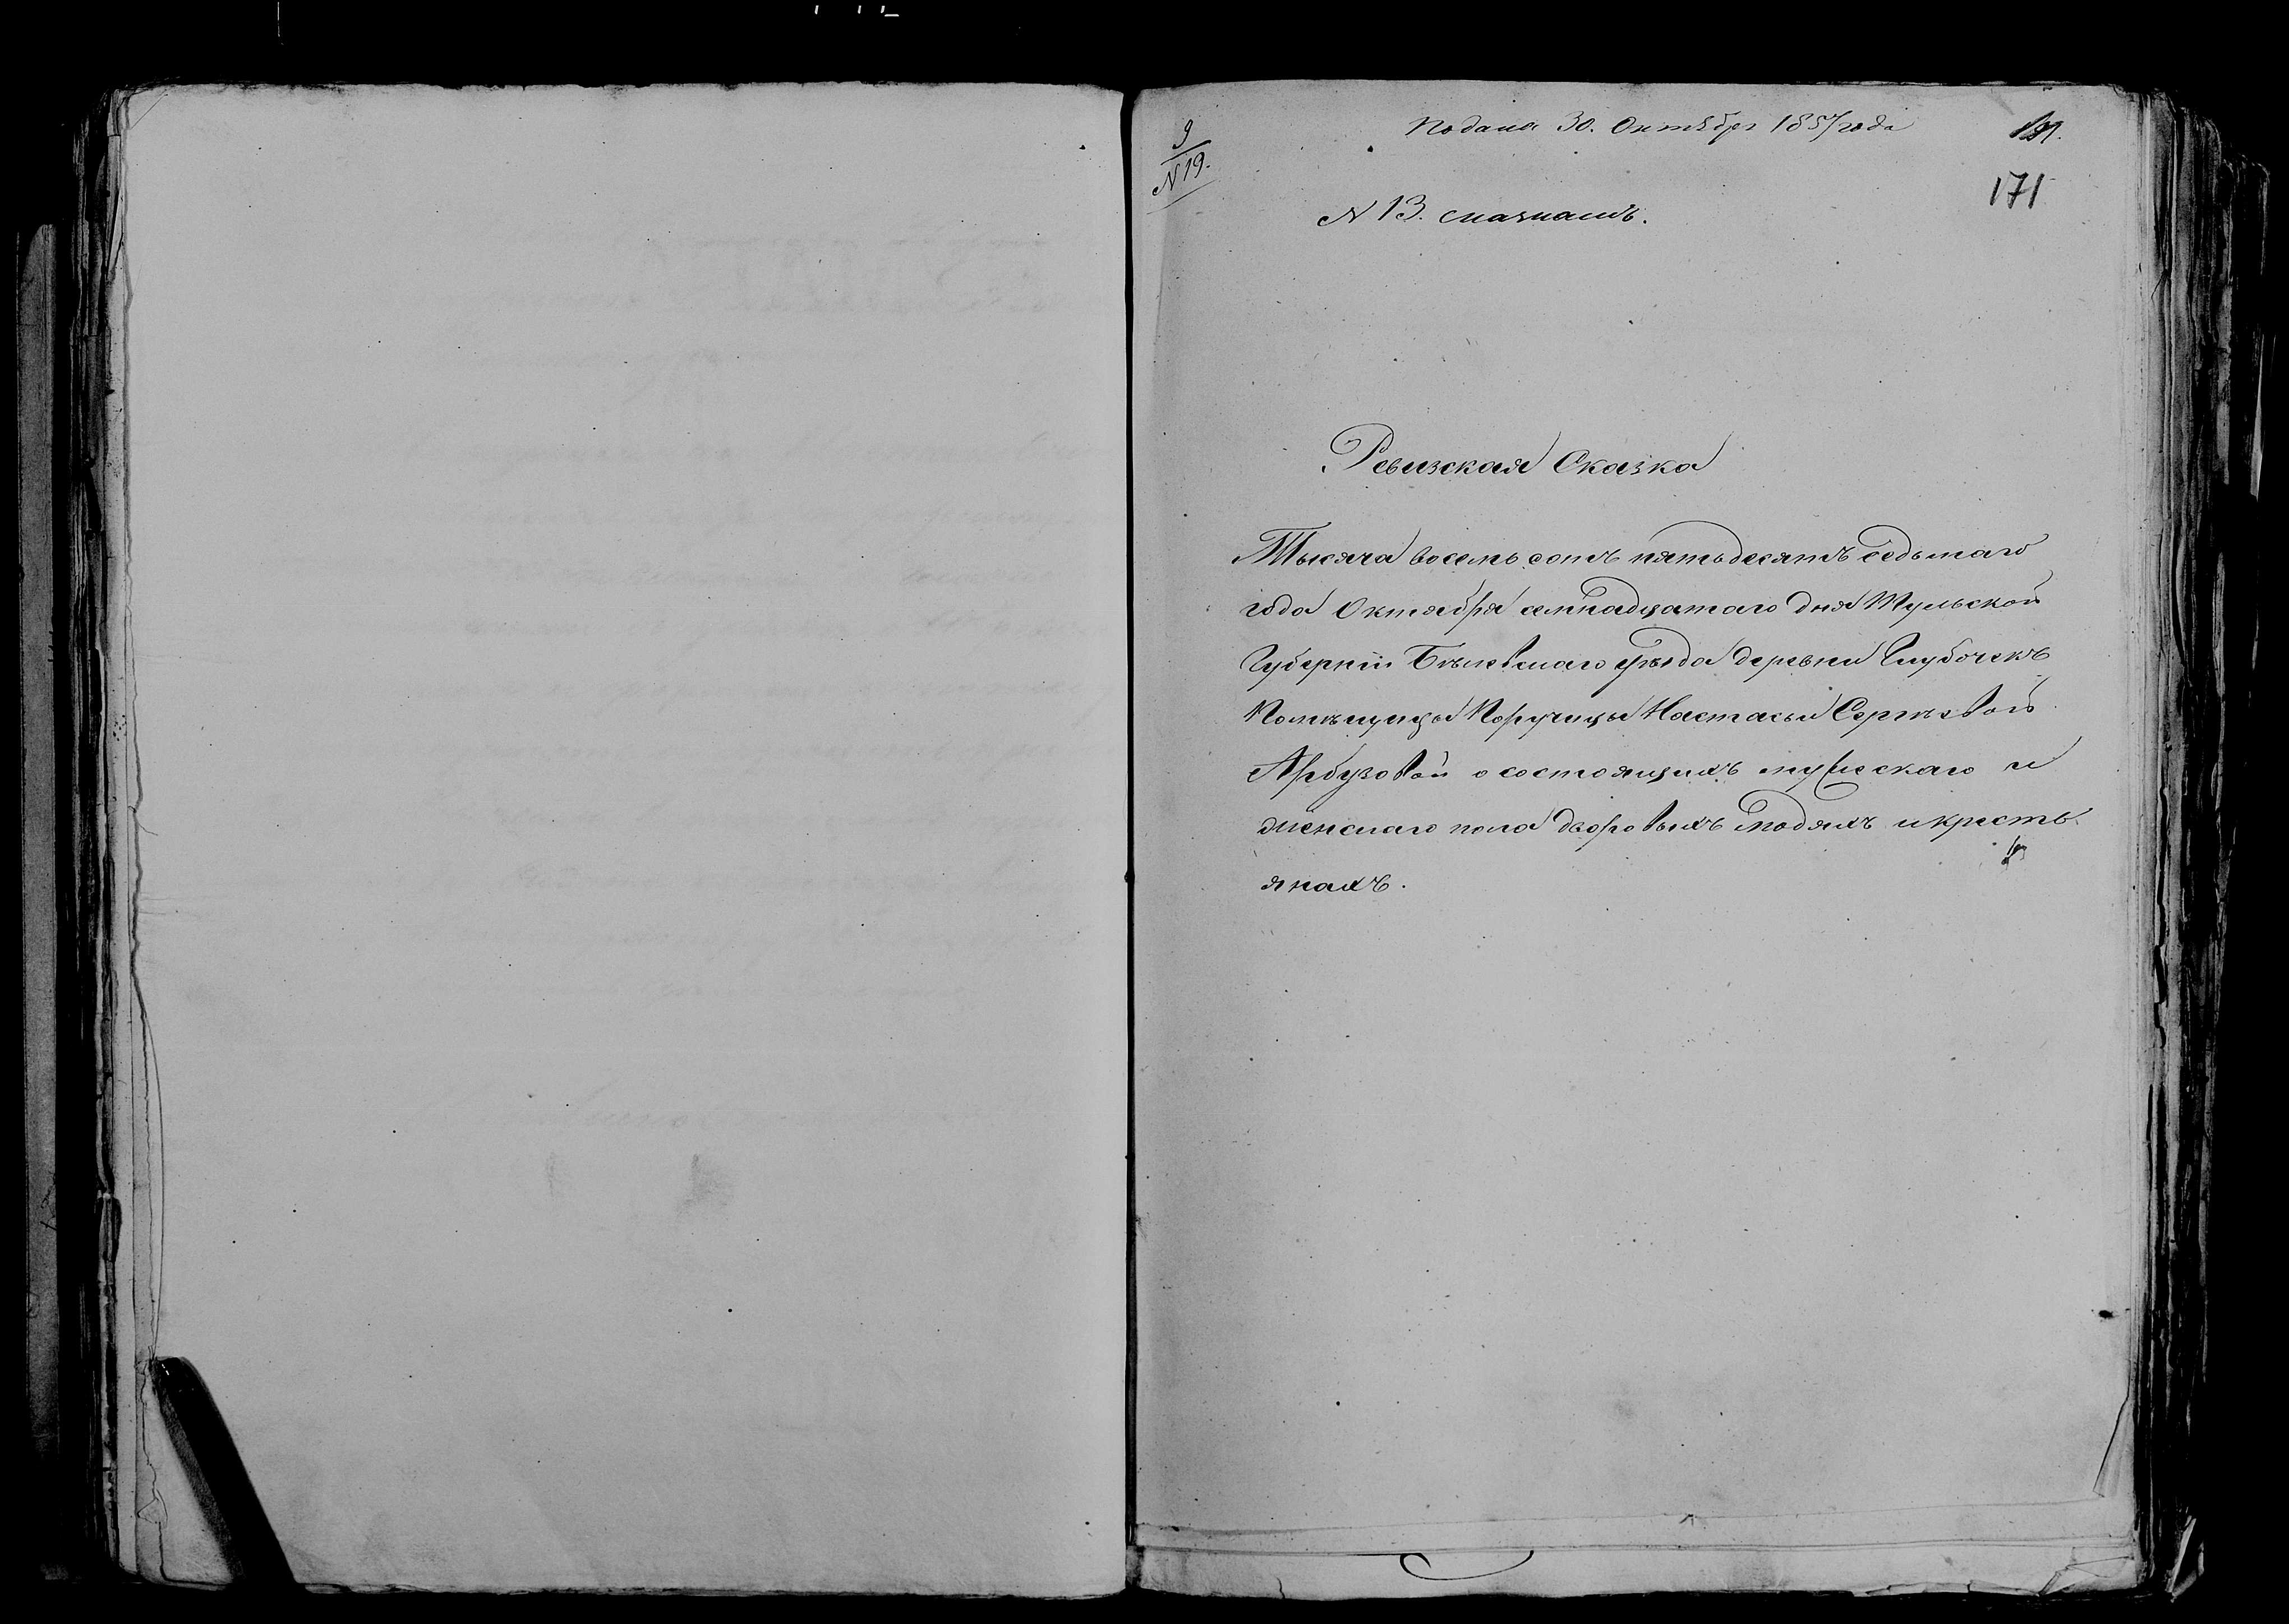 Подана 30. Октября 1857 года
9
N 19.
171
N 13.
Ревизская Сказка
Тысяча восемь сотъ пятьдесятъ седьмаго
года Октября семнадцатаго дня Тульской
Губернiи Бѣлевскаго уѣзда деревни Глубочекъ
Помѣщицы Поручицы Настасьи Сергѣевой
Арбузовой о состоящихъ мужескаго и
женскаго пола дворовыхъ людяхъ и кресть
янахъ.